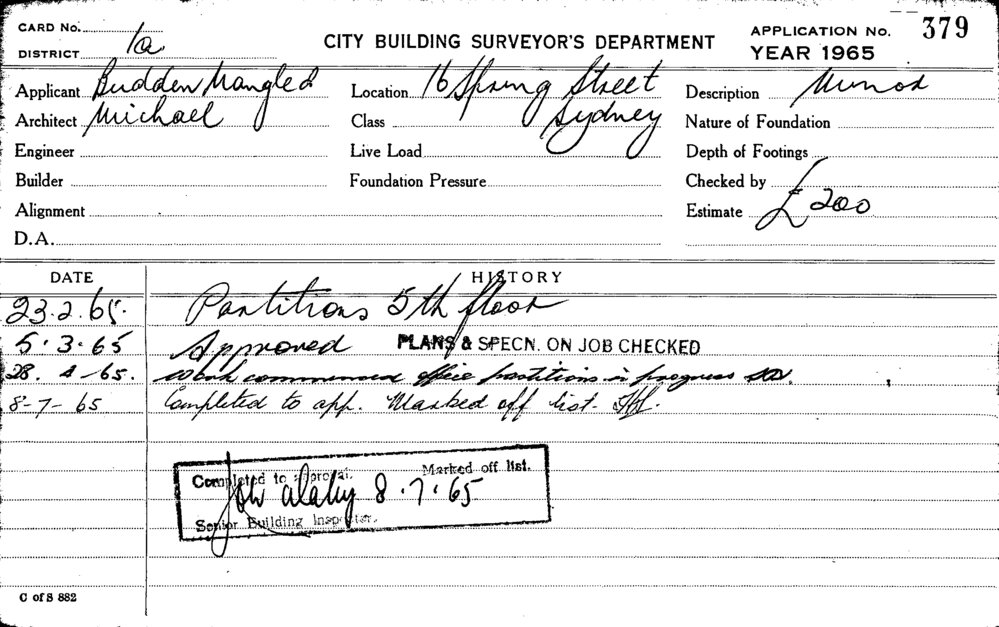 CARD No.
DISTRICT 1a
CITY BUILDING SURVEYOR'S DEPARTMENT
APPLICATION No. 379
YEAR 1965
Applicant Budden Nangle &
Architect Michael
Engineer
Builder
Alignment
D.A.
Location 16 Spring Street
Class Sydney
Live Load
Foundation Pressure
Description Minor
Nature of Foundation
Depth of Footings
Checked by
Estimate £200
DATE HISTORY
23.2.65. Partitions 5th floor
5.3.65 Approved PLANS & SPECN. ON JOB CHECKED
28.4-65. Work commenced office partitions in progress
8-7-65 Completed to app. Marked off list.
Completed to approval. Marked off list.
8.7.65
Senior Building Inspector.
C of S 882